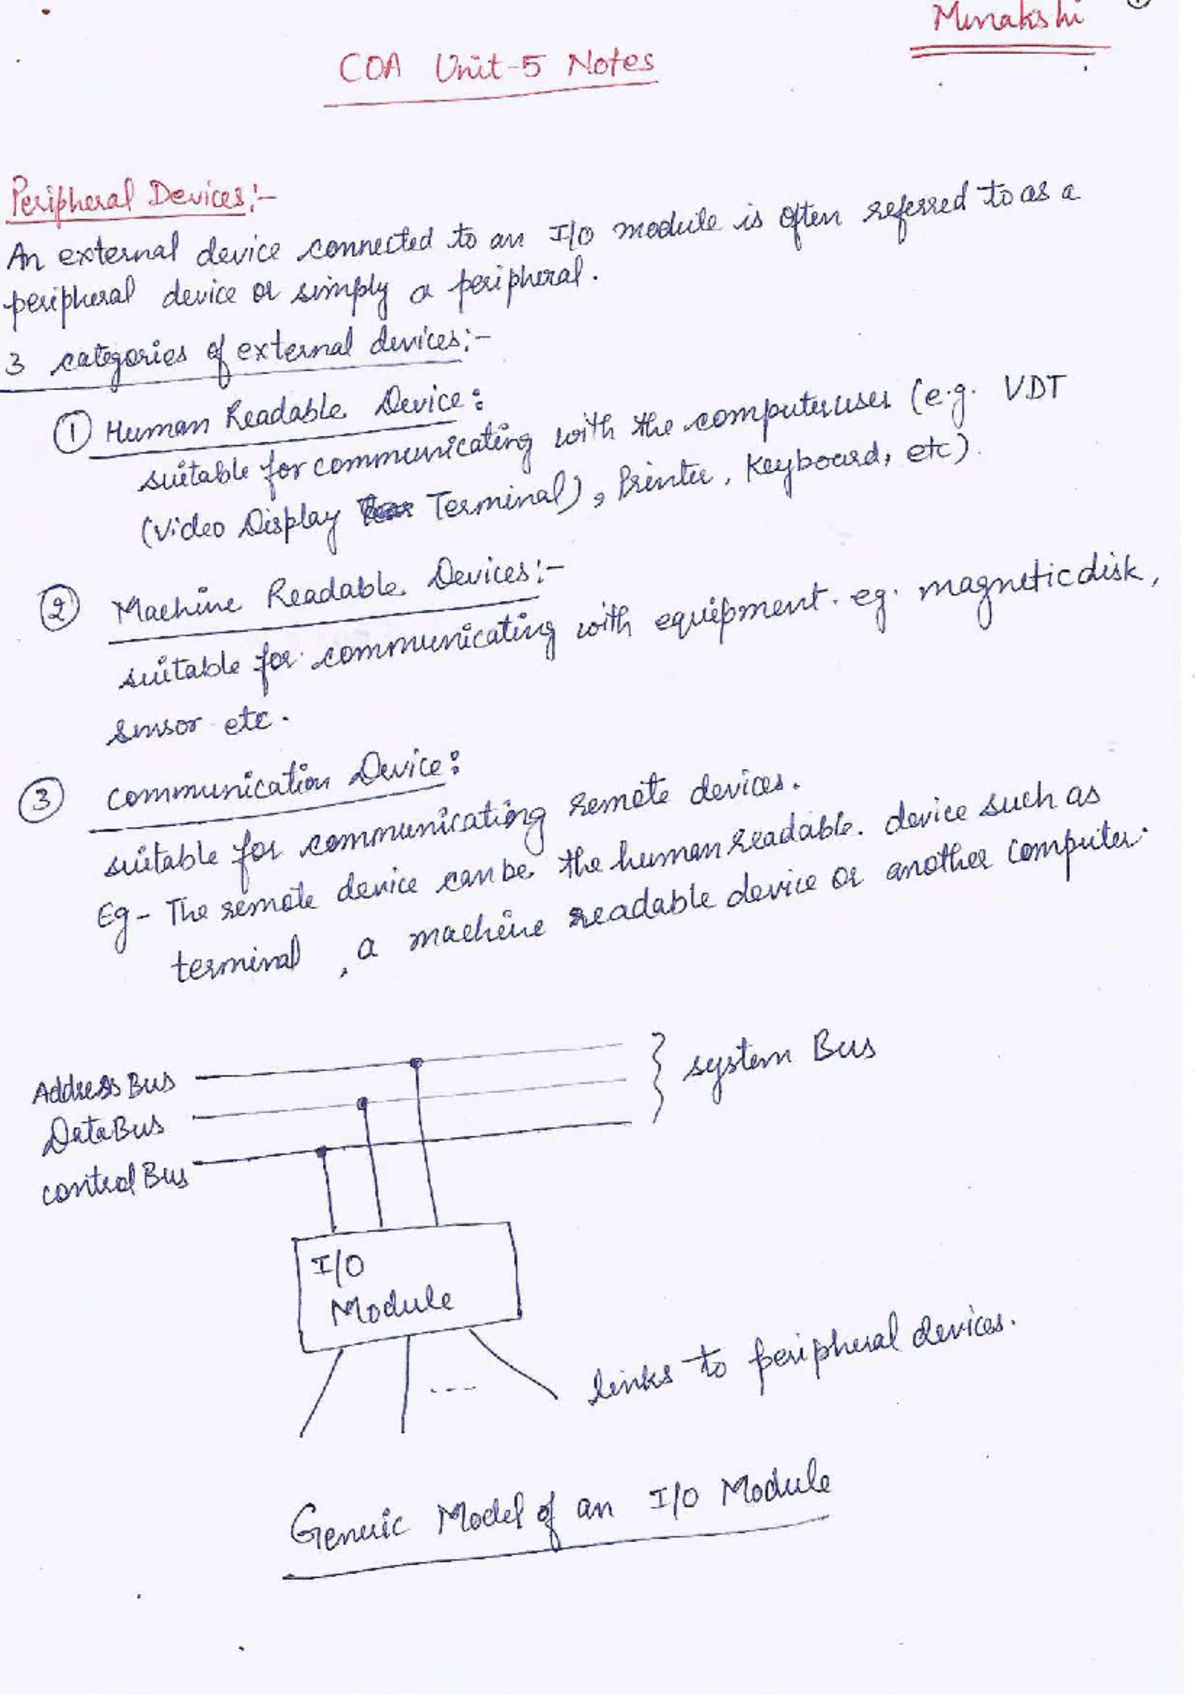 Minakshi
COA Unit-5 Notes
Peripheral Devices:-
An external device connected to an I/O module is often referred to as a
peripheral device or simply a peripheral.
3 categories of external devices:-
① Human Readable Device:
suitable for communicating with the computer user (e.g. VDT
(Video Display Terminal), Printer, Keyboard, etc).
② Machine Readable Devices:-
suitable for communicating with equipment. eg. magnetic disk,
sensor etc.
③ Communication Device:
suitable for communicating remote devices.
Eg - The remote device can be the human readable. device such as
terminal, a machine readable device or another computer.
Address Bus
Data Bus
control Bus
system Bus
I/O
Module
....
links to peripheral devices.
Generic Model of an I/O Module